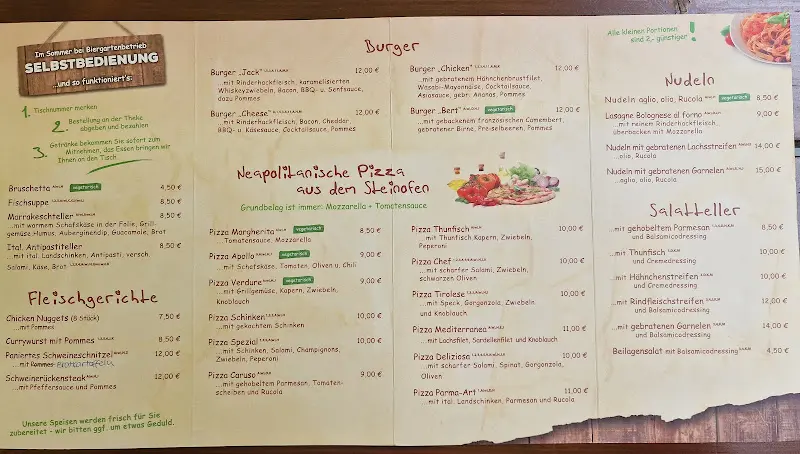 Im Sommer bei Biergartenbetrieb
SELBSTBEDIENUNG
...und so funktioniert's:
1. Tischnummer merken
2. Bestellung an der Theke
abgeben und bezahlen
3. Getränke bekommen Sie sofort zum
Mitnehmen, das Essen bringen wir
Ihnen an den Tisch
Bruschetta vegetarisch 4,50 €
Fischsuppe 8,50 €
Marrakeschteller 8,50 €
...mit warmem Schafskäse in der Folie, Grill-
gemüse Humus, Auberginendip, Guacamole, Brot
Ital. Antipastiteller 8,50 €
...mit ital. Landschinken, Antipasti, versch.
Salami, Käse, Brot
Fleischgerichte
Chicken Nuggets (8 Stück) 7,50 €
...mit Pommes
Currywurst mit Pommes 8,50 €
Paniertes Schweineschnitzel 12,00 €
...mit Pommes
Schweinerückensteak 12,00 €
...mit Pfeffersauce und Pommes
Unsere Speisen werden frisch für Sie
zubereitet - wir bitten ggf. um etwas Geduld.
Burger
Burger „Jack" 12,00 €
...mit Rinderhackfleisch, karamelisierten
Whiskeyzwiebeln, Bacon, BBQ- u. Senfsauce,
dazu Pommes
Burger „Cheese" 12,00 €
...mit Rinderhackfleisch, Bacon, Cheddar
BBQ- u. Käsesauce, Cocktailsauce, Pommes
Burger „Chicken" 12,00 €
...mit gebratenem Hähnchenbrustfilet,
Wasabi-Mayonaise, Cocktailsauce,
Asiasauce, gebr. Ananas, Pommes
Burger „Bert" vegetarisch 12,00 €
...mit gebackenem französischen Camembert,
gebratener Birne, Preiselbeeren, Pommes
Neapolitanische Pizza
aus dem Steinofen
Grundbelag ist immer: Mozzarella + Tomatensauce
Pizza Margherita vegetarisch 8,50 €
Tomatensauce, Mozzarella
Pizza Apollo vegetarisch 9,00 €
...mit Schafskäse, Tomaten, Oliven u. Chili
Pizza Verdure vegetarisch 9,00 €
...mit Grillgemüse, Kapern, Zwiebeln,
Knoblauch
Pizza Schinken 10,00 €
...mit gekochtem Schinken
Pizza Spezial 10,00 €
...mit Schinken, Salami, Champignons,
Zwiebeln, Peperoni
Pizza Caruso 9,00 €
...mit gehobeltem Parmesan, Tomaten-
scheiben und Rucola
Pizza Thunfisch 10,00 €
...mit Thunfisch Kapern, Zwiebeln,
Peperoni
Pizza Chef 10,00 €
...mit scharfer Salami, Zwiebeln,
schwarzen Oliven
Pizza Tirolese 10,00 €
...mit Speck, Gorgonzola, Zwiebeln
und Knoblauch
Pizza Mediterranea 11,00 €
...mit Lachsfilet, Sardellenfilet und Knoblauch
Pizza Deliziosa 10,00 €
...mit scharfer Salami, Spinat, Gorgonzola,
Oliven
Pizza Parma-Art 11,00 €
...mit ital. Landschinken, Parmesan und Rucola
Alle kleinen Portionen
sind 2,- günstiger!
Nudeln
Nudeln aglio, olio, Rucola vegetarisch 8,50 €
Lasagne Bolognese al forno 9,00 €
...mit reinem Rinderhackfleisch,
überbacken mit Mozzarella
Nudeln mit gebratenen Lachsstreifen 14,00 €
...olio, Rucola
Nudeln mit gebratenen Garnelen 15,00 €
...aglio, olio, Rucola
Salatteller
...mit gehobeltem Parmesan 8,50 €
und Balsamicodressing
...mit Thunfisch 10,00 €
und Cremedressing
...mit Hähnchenstreifen 10,00 €
und Cremedressing
...mit Rindfleischstreifen 12,00 €
und Balsamicodressing
...mit gebratenen Garnelen 14,00 €
und Balsamicodressing
Beilagensalat mit Balsamicodressing 4,50 €